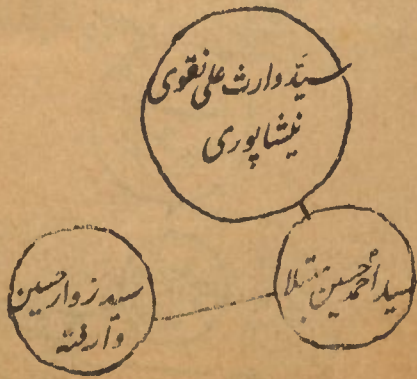 سیّد وارث علی نقوی
نیشاپوری
سید احمد حسین مبتلا
سید زوار حسین
وارفتہ